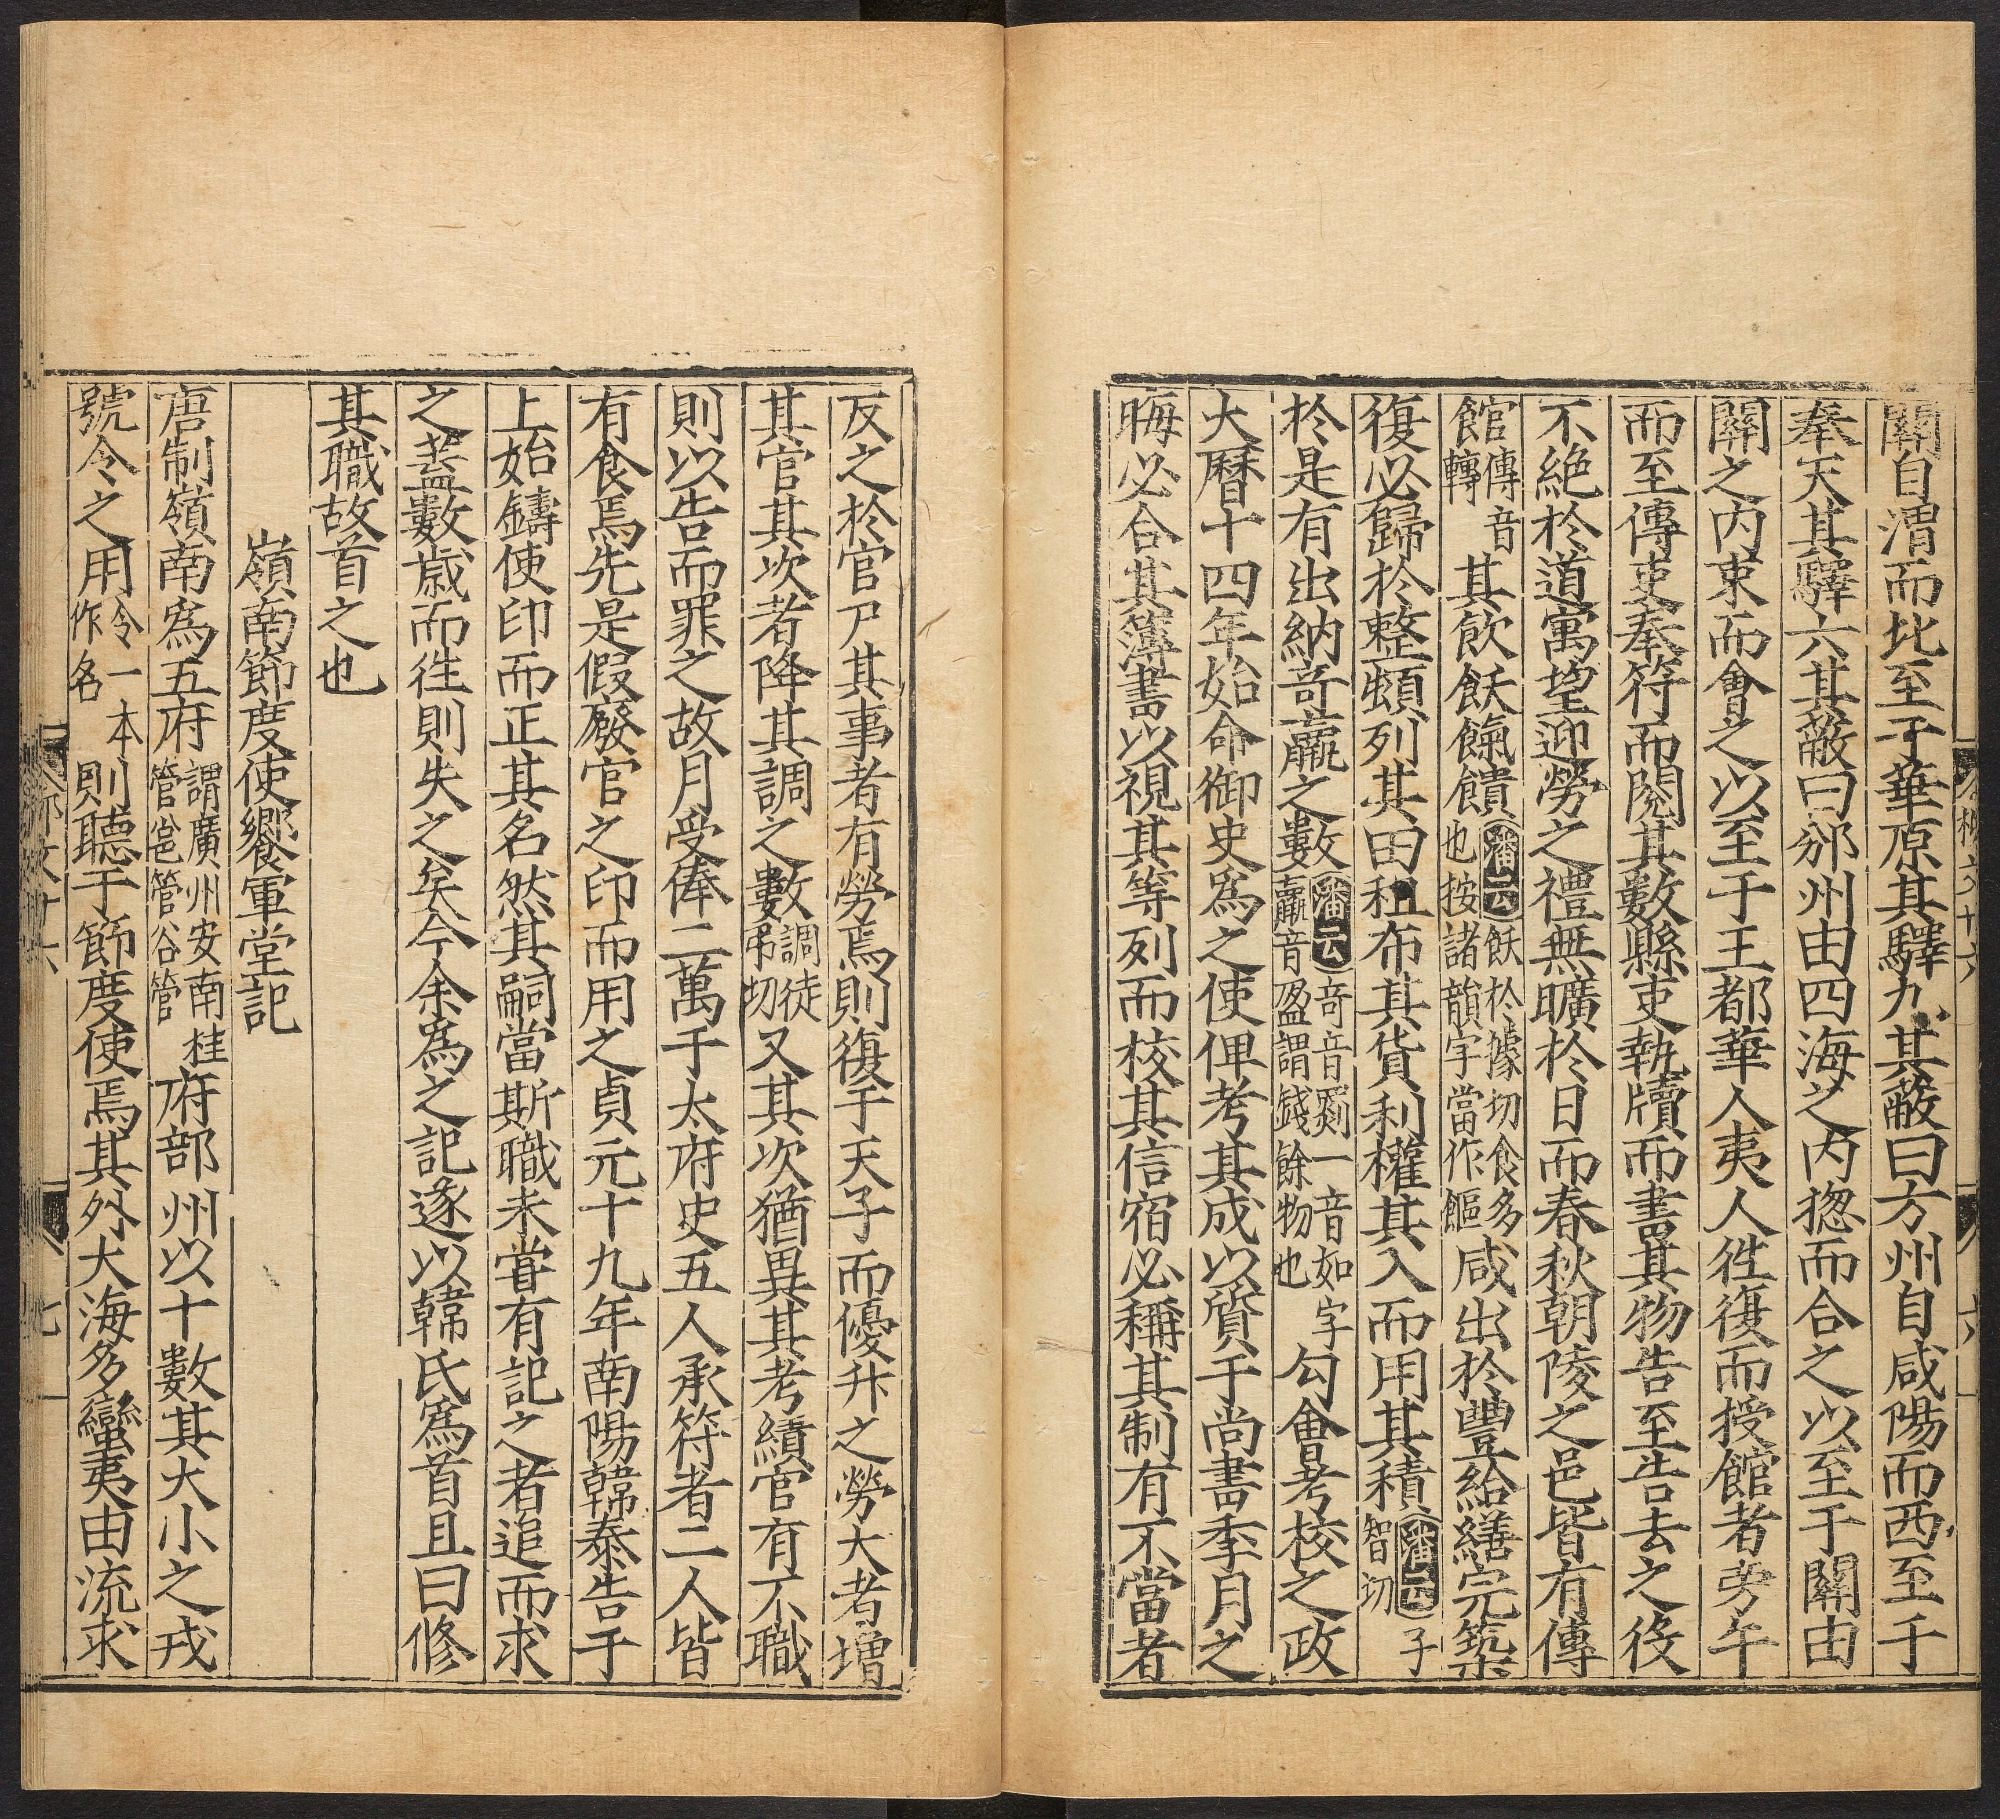 關自渭而北至于華原其驛九其蔽曰方州自咸陽而西至于
奉天其驛六其蔽曰邠州由四海之內揔而合之以至于關由
關之內束而會之以至于王都華人夷人徃復而授館者旁午
而至傳吏奉符而閱其數縣吏執牘而書其物告至告去之役
不絶於道寓望迎勞之禮無曠於日而春秋朝陵之邑皆有傳
館傳音轉其飲飫餼饋潘云飫於據切食多也按諸韻字當作䭓咸出於豐給繕完築
復必歸於整頓列其田租布其貨利權其入而用其積潘云子智切
於是有出納奇羸之數潘云奇音羁一音如字羸音盈謂錢餘物也勾會考校之政
大曆十四年始命御史爲之使俾考其成以質于尚書季月之
晦必合其簿書以視其等列而校其信宿必稱其制有不當者
反之於官尸其事者有勞焉則復于天子而優升之勞大者增
其官其次者降其調之數調徒弔切又其次猶異其考績官有不職
則以告而罪之故月受俸二萬于太府史五人承符者二人皆
有食焉先是假廢官之印而用之貞元十九年南陽韓泰告于
上始鑄使印而正其名然其嗣當斯職未甞有記之者追而求
之蓋數歲而徃則失之矣今余爲之記遂以韓氏爲首且曰修
其職故首之也
嶺南節度使饗軍堂記
唐制嶺南爲五府謂廣州安南桂管邕管容管府部州以十數其大小之戎
號令之用令一本作名則聽于節度使焉其外大海多蠻夷由流求